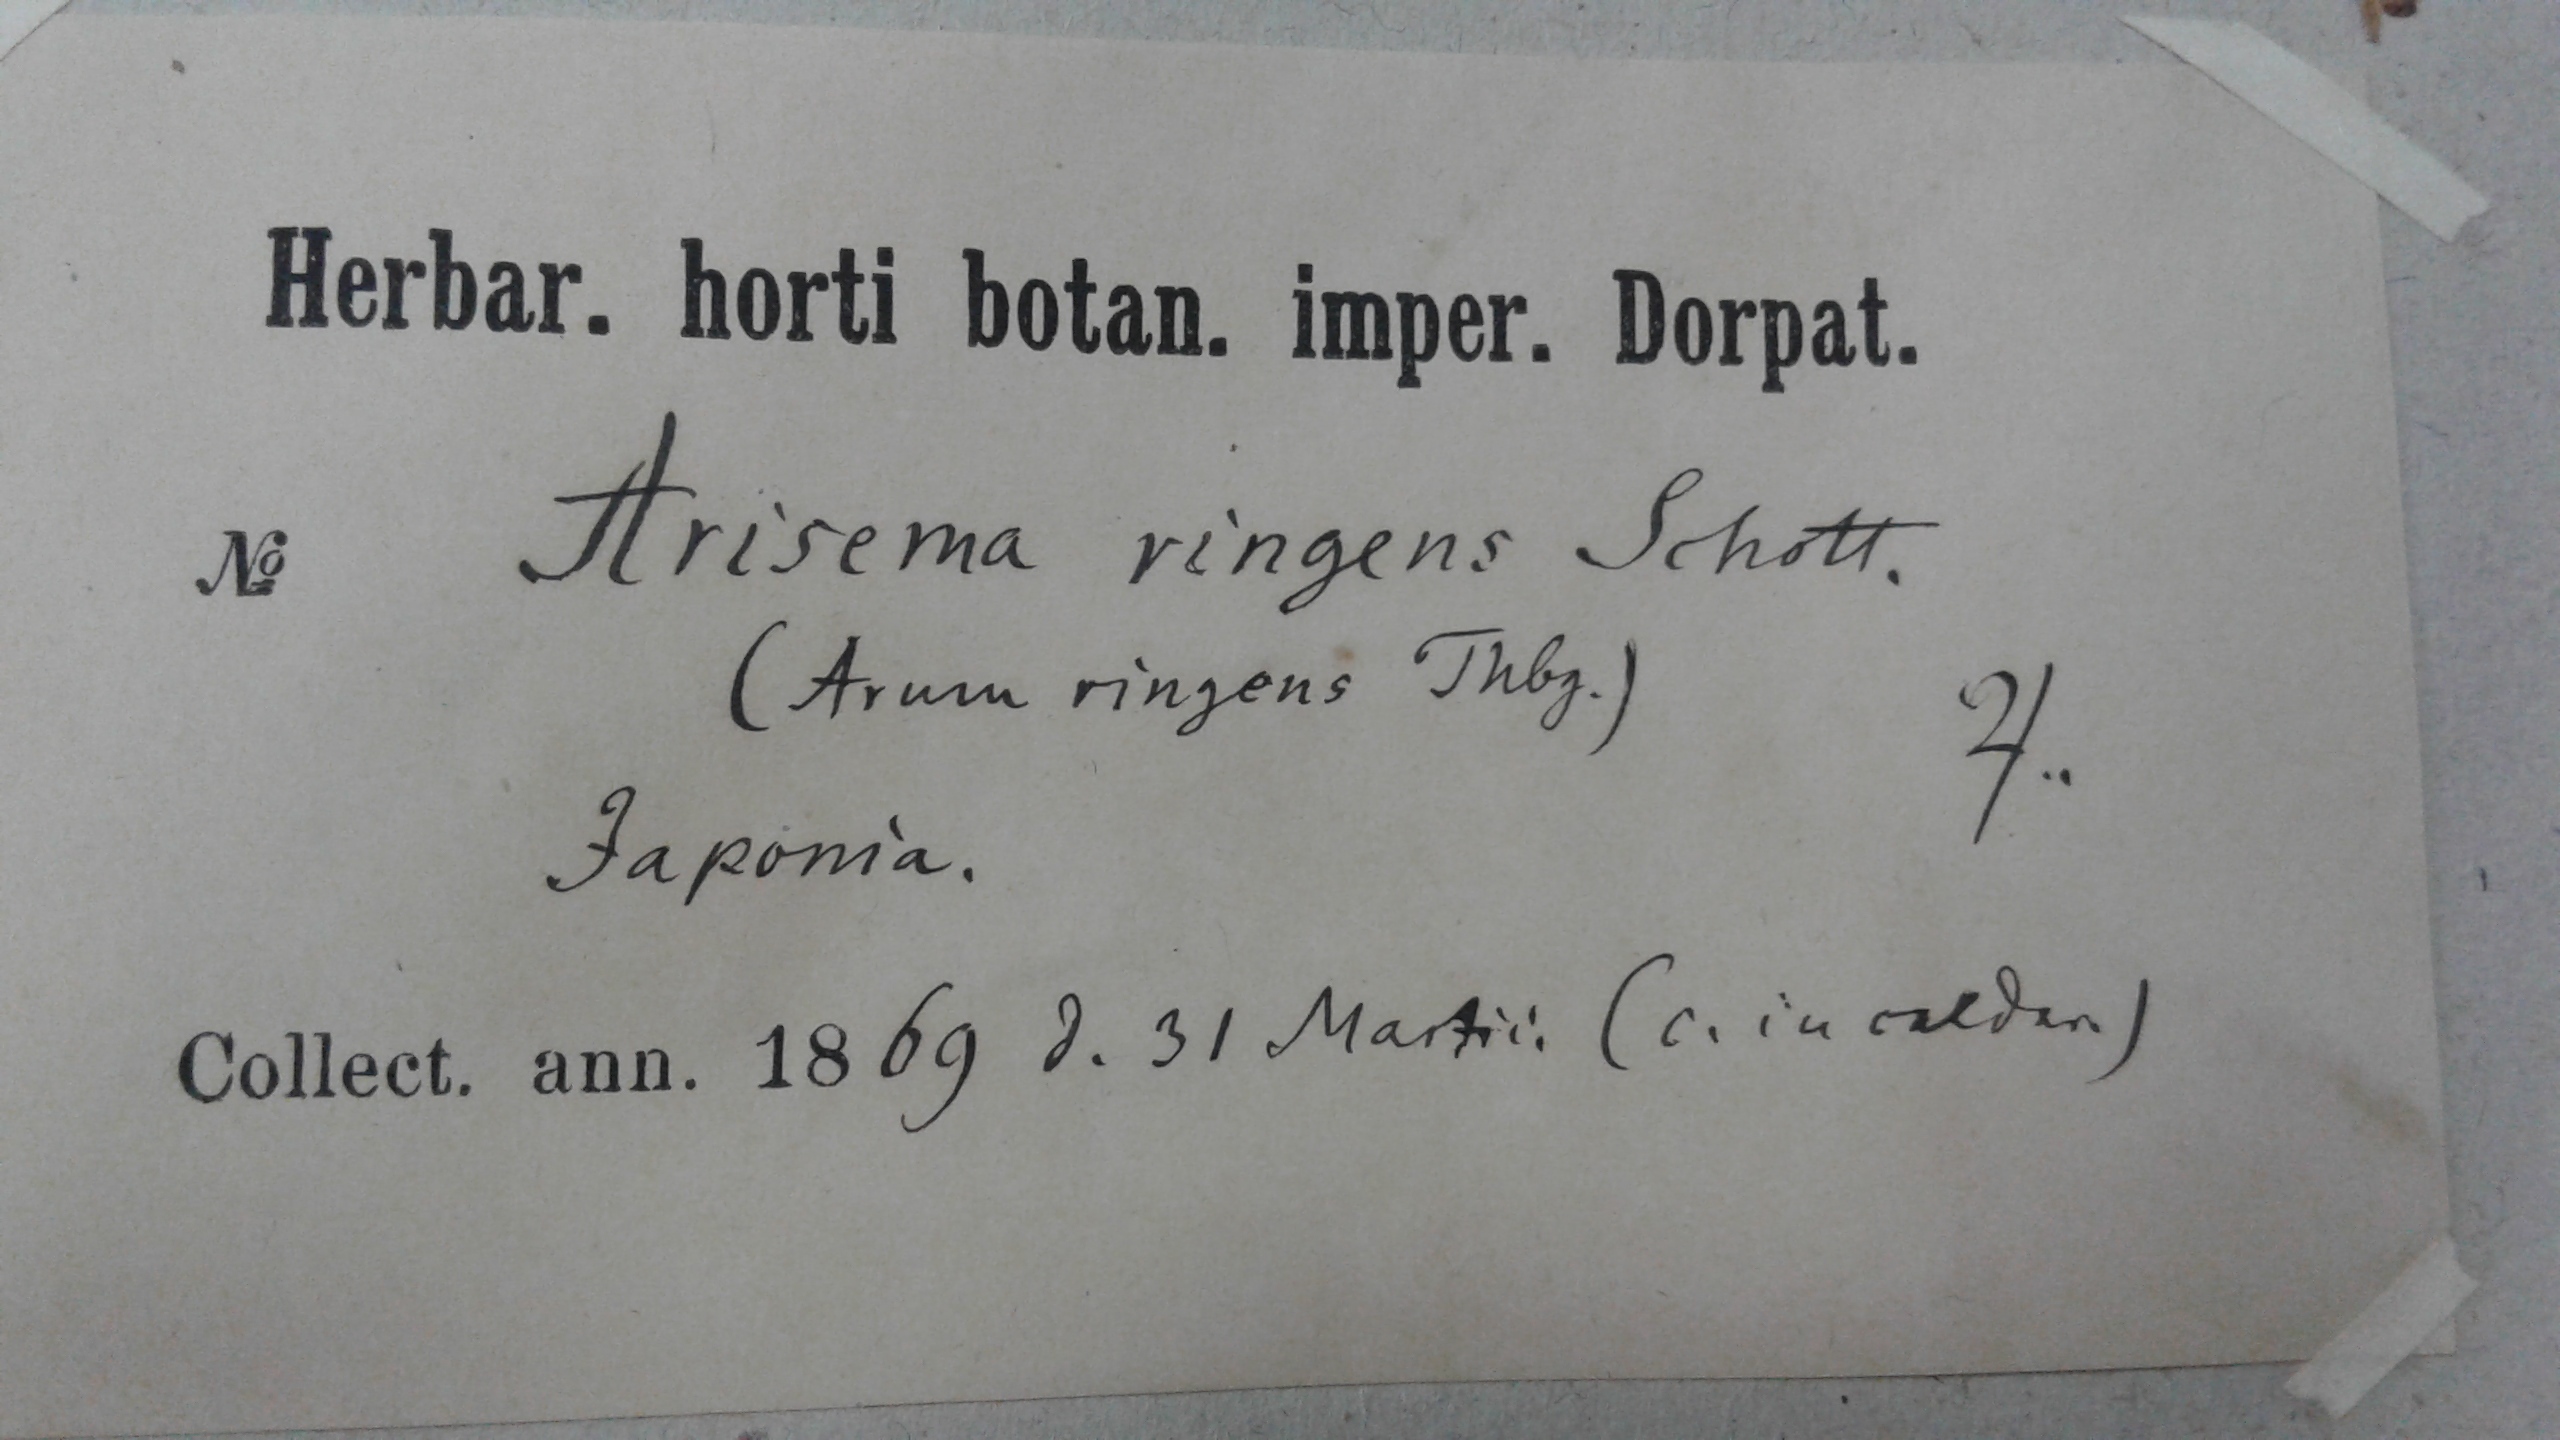 Herbar. horti botan. imper. Dorpat.
№ Arisema ringens Schott.
(Arum ringens Thbg.)
♃..
Japonia.
Collect. ann. 1869 d. 31 Martii. (c. in caldar.)